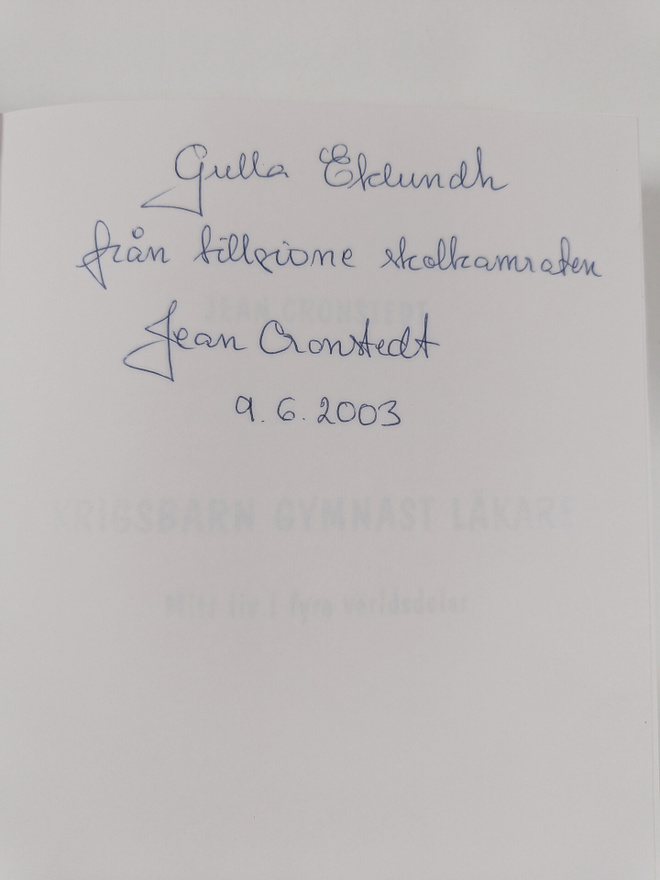 Gulla Eklundh
från tillgivne skolkamraten
JEAN CRONSTEDT
Jean Cronstedt
9.6.2003
KRIGSBARN GYMNAST LÄKARE
Mitt liv i fyra världsdelar